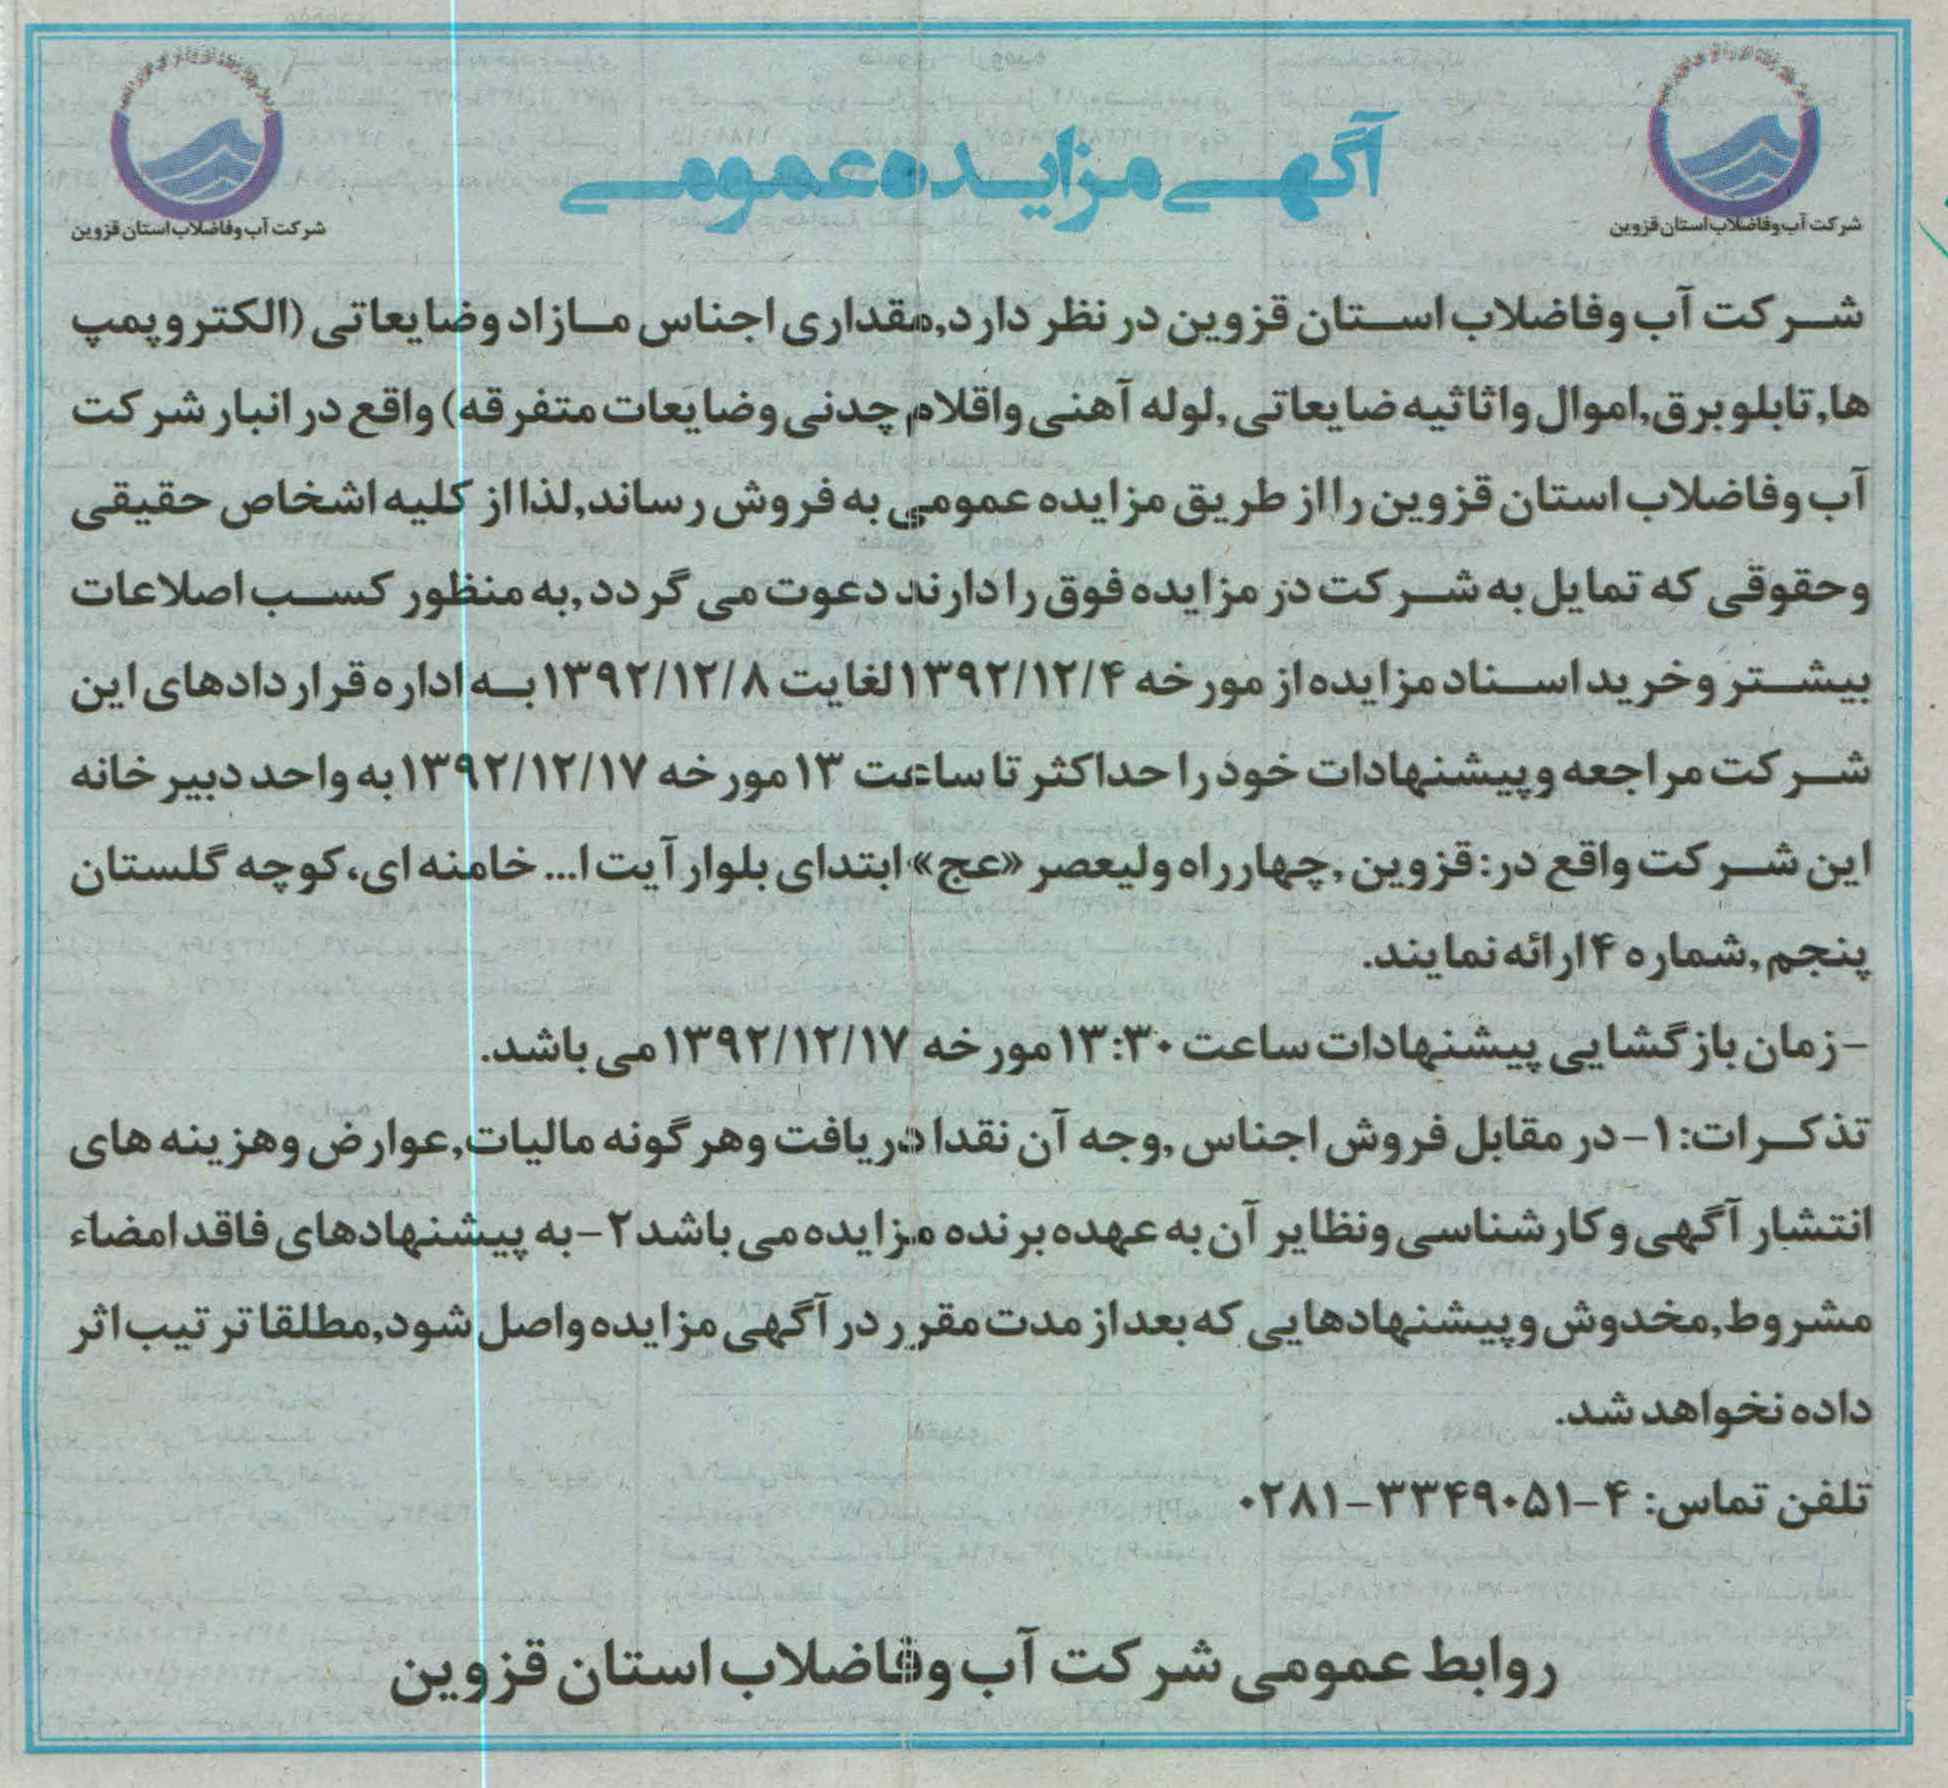 آگهی مزایده عمومی
شرکت آب وفاضلاب استان قزوین
شرکت آب وفاضلاب استان قزوین
شرکت آب وفاضلاب استان قزوین در نظر دارد,مقداری اجناس مازاد وضایعاتی (الکتروپمپ
ها,تابلو برق,اموال واثاثیه ضایعاتی ,لوله آهنی واقلام چدنی وضایعات متفرقه) واقع در انبار شرکت
آب وفاضلاب استان قزوین را از طریق مزایده عمومی به فروش رساند,لذا از کلیه اشخاص حقیقی
وحقوقی که تمایل به شرکت در مزایده فوق را دارند دعوت می گردد ,به منظور کسب اصلاعات
بیشتر وخرید اسناد مزایده از مورخه ۱۳۹۲/۱۲/۴ لغایت ۱۳۹۲/۱۲/۸ به اداره قراردادهای این
شرکت مراجعه وپیشنهادات خود را حداکثر تا ساعت ۱۳ مورخه ۱۳۹۲/۱۲/۱۷ به واحد دبیرخانه
این شرکت واقع در: قزوین ,چهارراه ولیعصر «عج» ابتدای بلوار آیت ا... خامنه ای، کوچه گلستان
پنجم ,شماره ۴ ارائه نمایند.
-زمان بازگشایی پیشنهادات ساعت ۱۳:۳۰ مورخه ۱۳۹۲/۱۲/۱۷ می باشد.
تذکرات: ۱- در مقابل فروش اجناس ,وجه آن نقدا دریافت وهرگونه مالیات,عوارض وهزینه های
انتشار آگهی وکارشناسی ونظایر آن به عهده برنده مزایده می باشد ۲- به پیشنهادهای فاقد امضاء
مشروط,مخدوش وپیشنهادهایی که بعد از مدت مقرر در آگهی مزایده واصل شود,مطلقا ترتیب اثر
داده نخواهد شد.
تلفن تماس: ۴-۳۳۴۹۰۵۱-۰۲۸۱
روابط عمومی شرکت آب وفاضلاب استان قزوین